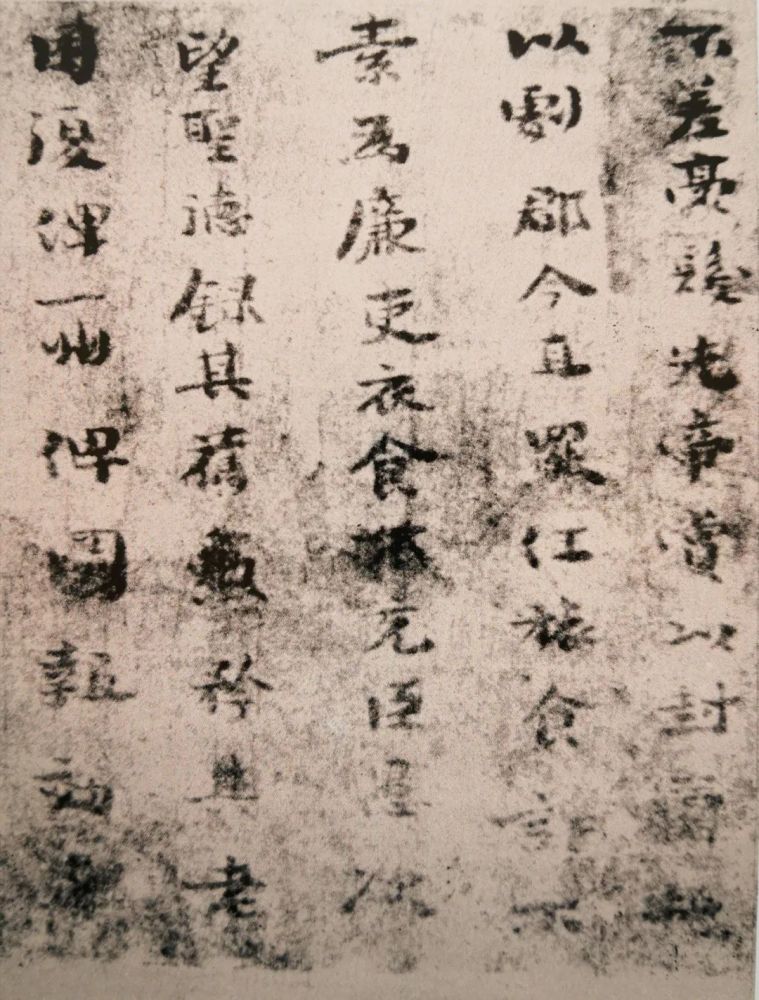 不差豪髮先帝賞以封爵授
以劇郡今直罷任旅食許下
素為廉吏衣食不充臣愚欲
望聖德錄其舊勳矜其老
困復俾一州俾圖報效直